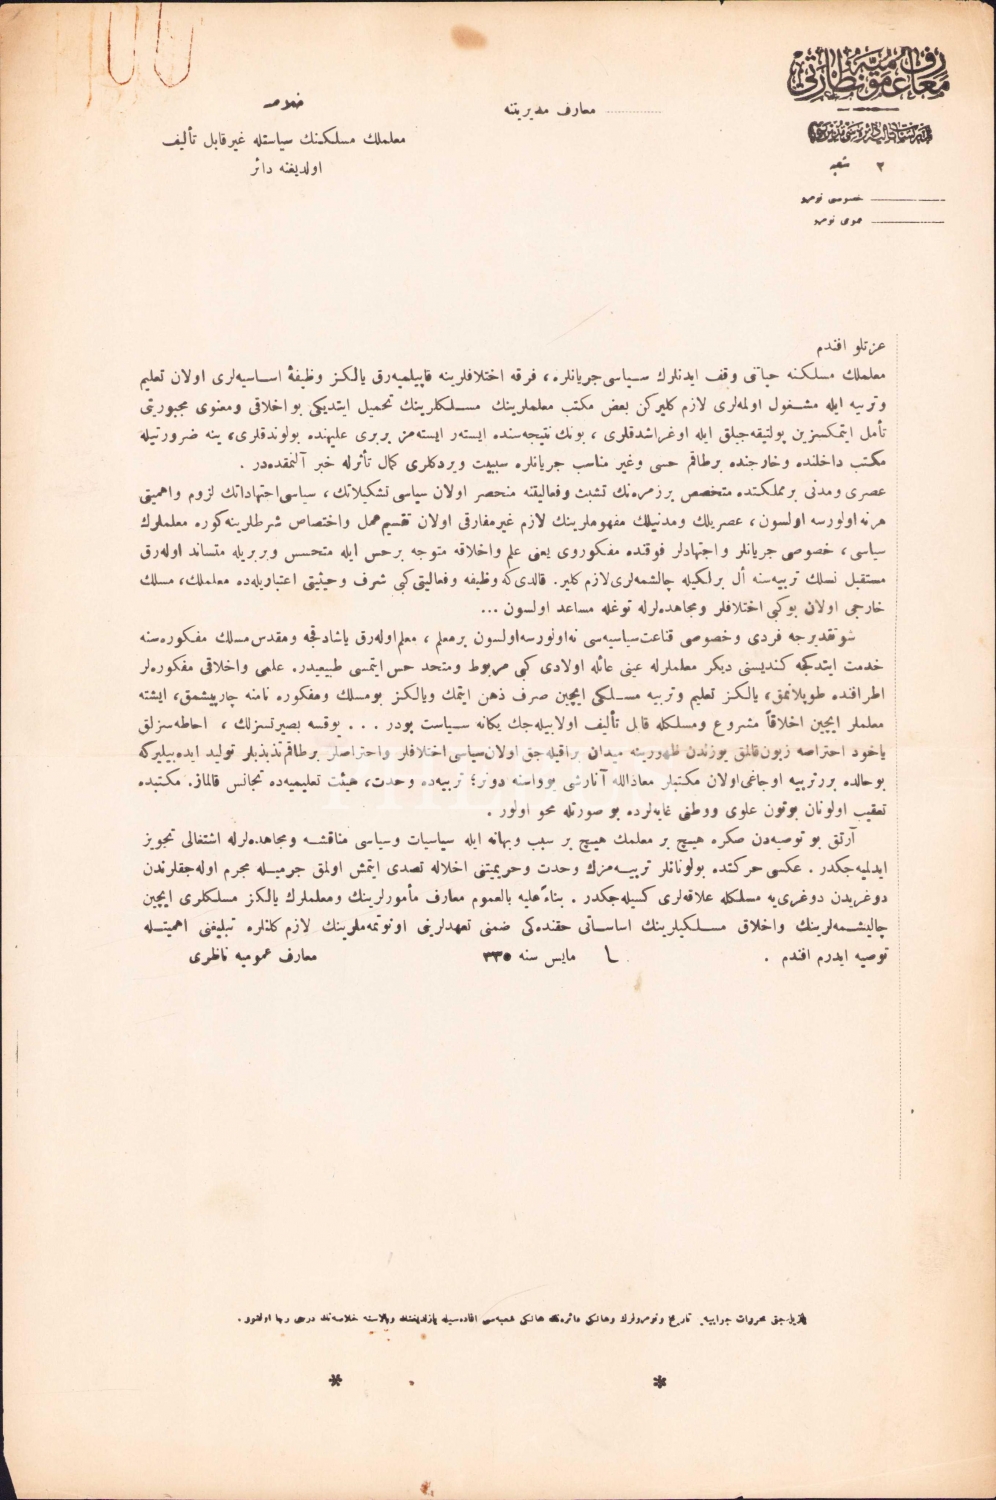 معارف عمومیه نظارتی
۲ شعبه
خصوصی نومرو
عمومی نومرو
معارف مدیریتنه
خلاصه
معلملك مسلكنك سیاستله غیر قابل تألیف
اولدیغنه دائر
عزتلو افندم
معلملك مسلكنه حیاتی وقف ایدنلرك سیاسی جریانلره، فرقه اختلافلرینه قاپیلمیه‌رق یالكز وظیفۀ اساسیه‌لری اولان تعلیم
و تربیه ایله مشغول اولمه‌لری لازم كلیركن بعض مكتب معلملرینك مسلكلرینك تحمیل ایتدیكی بو اخلاقی و معنوی مجبوریتی
تأمل ایتمكسزین پولتیقه‌جیلق ایله اوغراشدقلری، بونك نتیجه‌سنده ایسته‌ر ایسته‌مز بربری علیهنده بولوندقلری، ینه ضرورتیله
مكتب داخلنده و خارجنده برطاقم حسی و غیر مناسب جریانلره سببیت ویردكلری كمال تأثرله خبر آلنمقده‌در .
عصری و مدنی بر مملكتده متخصص بر زمره‌نك تشبث و فعالیتنه منحصر اولان سیاسی تشكیلاتك، سیاسی اجتهاداتك لزوم و اهمیتی
هر نه اولورسه اولسون، عصریلك و مدنیلك مفهوملرینك لازم غیر مفارقی اولان تقسیم عمل و اختصاص شرطلرینه كوره معلملرك
سیاسی، خصوصی جریانلر و اجتهادلر فوقنده مفكوروی یعنی علم و اخلاقه متوجه بر حس ایله متحسس و بربریله متساند اوله‌رق
مستقبل نسلك تربیه‌سنه أل برلكیله چالشمه‌لری لازم كلیر. قالدی كه وظیفه و فعالیتی كبی شرف و حیثیتی اعتباریله‌ده معلملك، مسلك
خارجی اولان بو كبی اختلافلر و مجاهده‌لرله توغله مساعد اولسون ...
شو تقدیرجه فردی و خصوصی قناعت سیاسیه‌سی نه اولورسه اولسون بر معلم، معلم اوله‌رق یاشادقجه و مقدس مسلك مفكوره‌سنه
خدمت ایتدكجه كندیسنی دیكر معلملرله عینی عائله اولادی كبی مربوط و متحد حس ایتمسی طبیعیدر. علمی و اخلاقی مفكوره‌لر
اطرافنده طوپلانمق، یالكز تعلیم و تربیه مسلكی ایچین صرف ذهن ایتمك و یالكز بو مسلك و مفكوره نامنه چارپیشمق، ایشته
معلملر ایچین اخلاقاً مشروع و مسلكله قابل تألیف اولابیله‌جك یكانه سیاست بودر ... یوقسه بصیرتسزلك، احاطه‌سزلق
یاخود احتراصه زبون قالمق یوزندن ظهورینه میدان براقیله‌جق اولان سیاسی اختلافلر و احتراصلر برطاقم تذبذبلر تولید ایده‌بیلیركه
بو حالده برر تربیه اوجاغی اولان مكتبلر معاذالله آنارشی یوواسنه دونر؛ تربیه‌ده وحدت، هیئت تعلیمیه‌ده تجانس قالماز. مكتبده
تعقیب اولونان بوتون علوی و وطنی غایه‌لرده بو صورتله محو اولور .
آرتق بو توصیه‌دن صكره هیچ بر معلمك هیچ بر سبب و بهانه ایله سیاسیات و سیاسی مناقشه و مجاهده‌لرله اشتغالی تجویز
ایدلمیه‌جكدر . عكسی حركتده بولونانلر تربیه‌مزك وحدت و حریمیتنی اخلاله تصدی ایتمش اولمق جرمیله مجرم اوله‌جقلرندن
دوغریدن دوغری‌یه مسلكله علاقه‌لری كسیله‌جكدر . بناءً علیه بالعموم معارف مأمورلرینك و معلملرك یالكز مسلكلری ایچین
چالیشمه‌لرینك و اخلاق مسلكیلرینك اساساتی حقنده‌كی ضمنی تعهدلرینی اونوتمه‌ملرینك لازم كلنلره تبلیغنی اهمیتله
توصیه ایدرم افندم . ۱ مایس سنه ۳۳۵ معارف عمومیه ناظری
یازیله‌جق محررات جوابیه تاریخ و نومرولرك و هانكی دائره‌نك هانكی شعبه‌سی افاده‌سیله یازلدیغنك و بالاسنه خلاصه‌نك درجی رجا اولنور .
* *